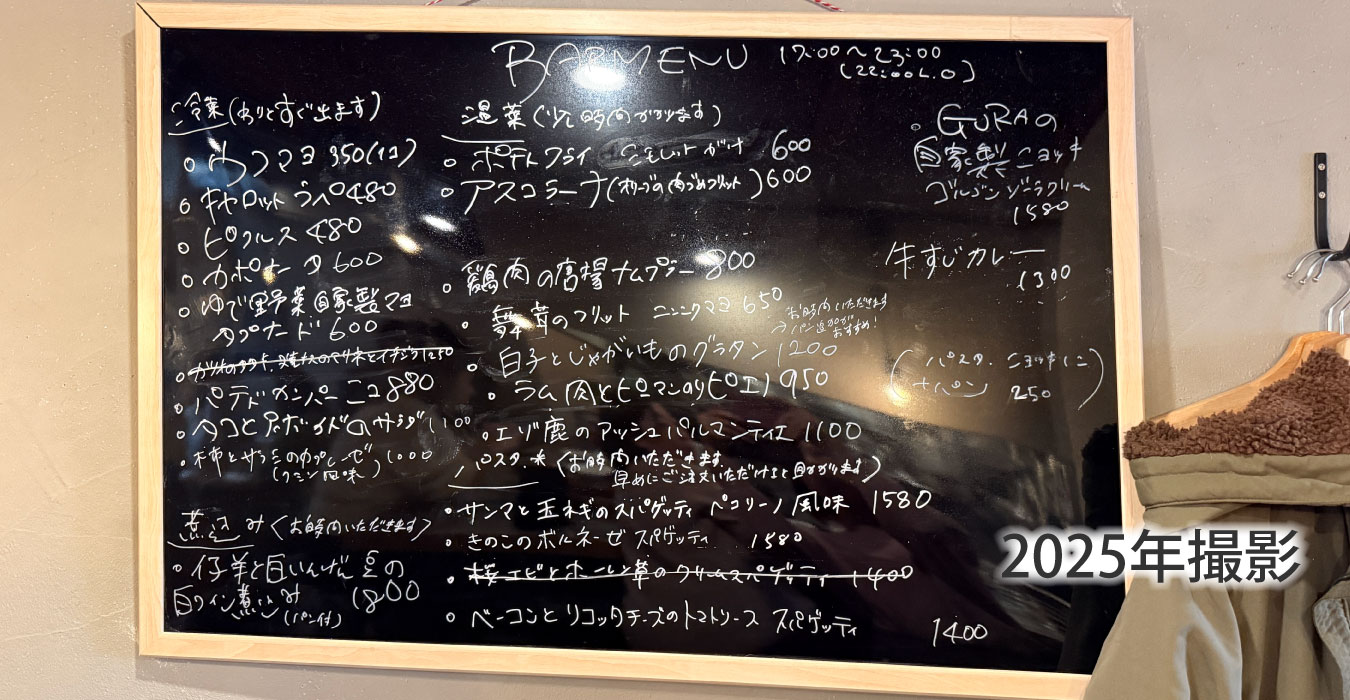 BARMENU 17:00〜23:00
(22:00 L.O)
冷菜(わりとすぐ出ます)
ウフマヨ 350(1コ)
キャロットラペ 480
ピクルス 480
カポナータ 600
ゆで野菜自家製マヨ
タプナード 600
1250
パテドカンパーニュ 880
タコとアボカドのサラダ 1100
1000
(クミン風味)
煮込み〈お時間いただきます〉
仔羊と白いんげん豆の
白ワイン煮込み 1800
(パン付)
温菜(少し時間かかります)
ポテトフライ がけ 600
アスコラーナ(オリーブの肉づめフリット) 600
鶏肉の唐揚ナムプラー 800
舞茸のフリット ニンニクマヨ 650
お時間いただきます
→パン追加がおすすめ!
白子とじゃがいものグラタン 1200
ラム肉とピーマンの 950
エゾ鹿のアッシュパルマンティエ 1100
パスタ ※(お時間いただきます
早めにご注文いただけると助かります)
サンマと玉ネギのスパゲッティ ペコリーノ風味 1580
きのこのボルネーゼ スパゲッティ 1580
桜エビとホーレン草のクリームスパゲッティ 1400
ベーコンとリコッタチーズのトマトソース スパゲッティ 1400
GURAの
自家製ニョッキ
ゴルゴンゾーラクリーム
1580
牛すじカレー
1300
(パスタ、ニョッキに
+パン 250)
2025年撮影